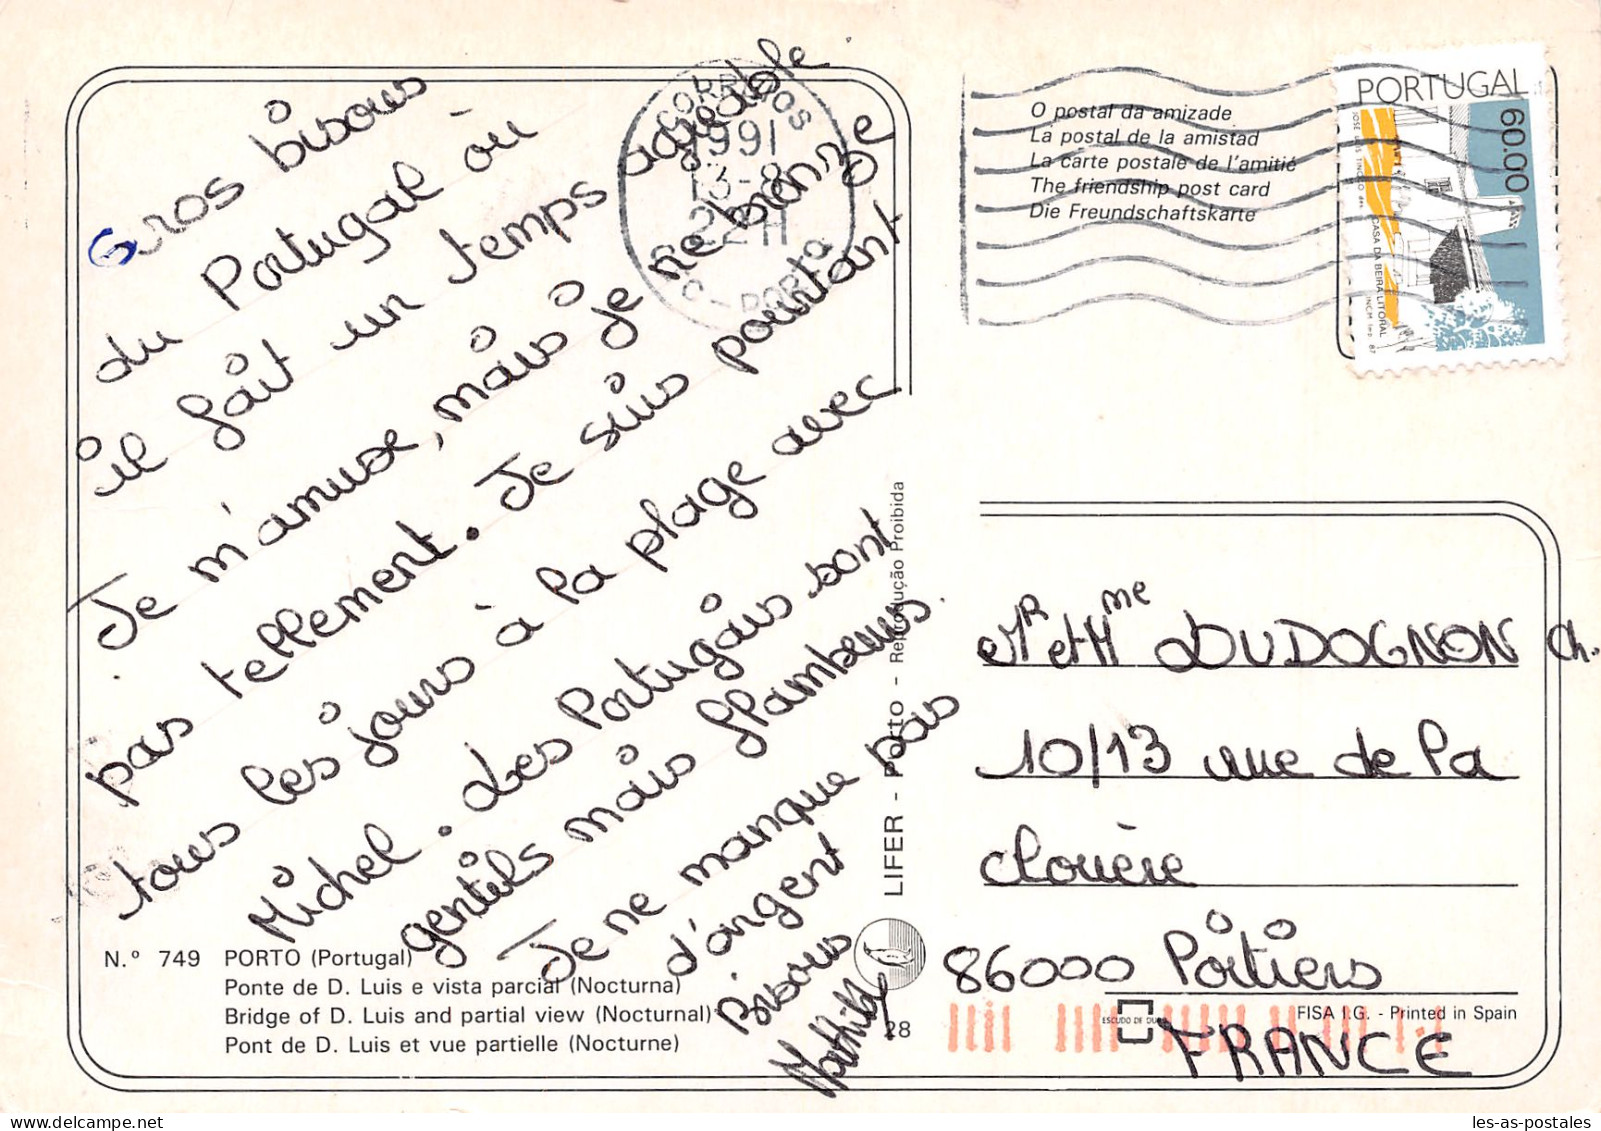 Gros bisous
du Portugal où
il fait un temps agréable
Je m'amuse, mais je ne bronze
pas tellement. Je suis pourtant
tous les jours à la plage avec
Michel. Les Portugais sont
gentils mais flambeurs.
Je ne manque pas
d'argent
Bisous
Mathilde
N.º 749 PORTO (Portugal)
Ponte de D. Luis e vista parcial (Nocturna)
Bridge of D. Luis and partial view (Nocturnal)
Pont de D. Luis et vue partielle (Nocturne)
LIFER - Porto - Reprodução Proibida
28
CORREIOS
1991
13-8
22H
PORTO
O postal da amizade
La postal de la amistad
La carte postale de l'amitié
The friendship post card
Die Freundschaftskarte
PORTUGAL
60.00
CASA DA BEIRA LITORAL
INCM Imp. 87
Mr et Mme DUDOGNON Ch.
10/13 rue de la
Clouère
86000 Poitiers
FRANCE
FISA I.G. - Printed in Spain
les-as-postales